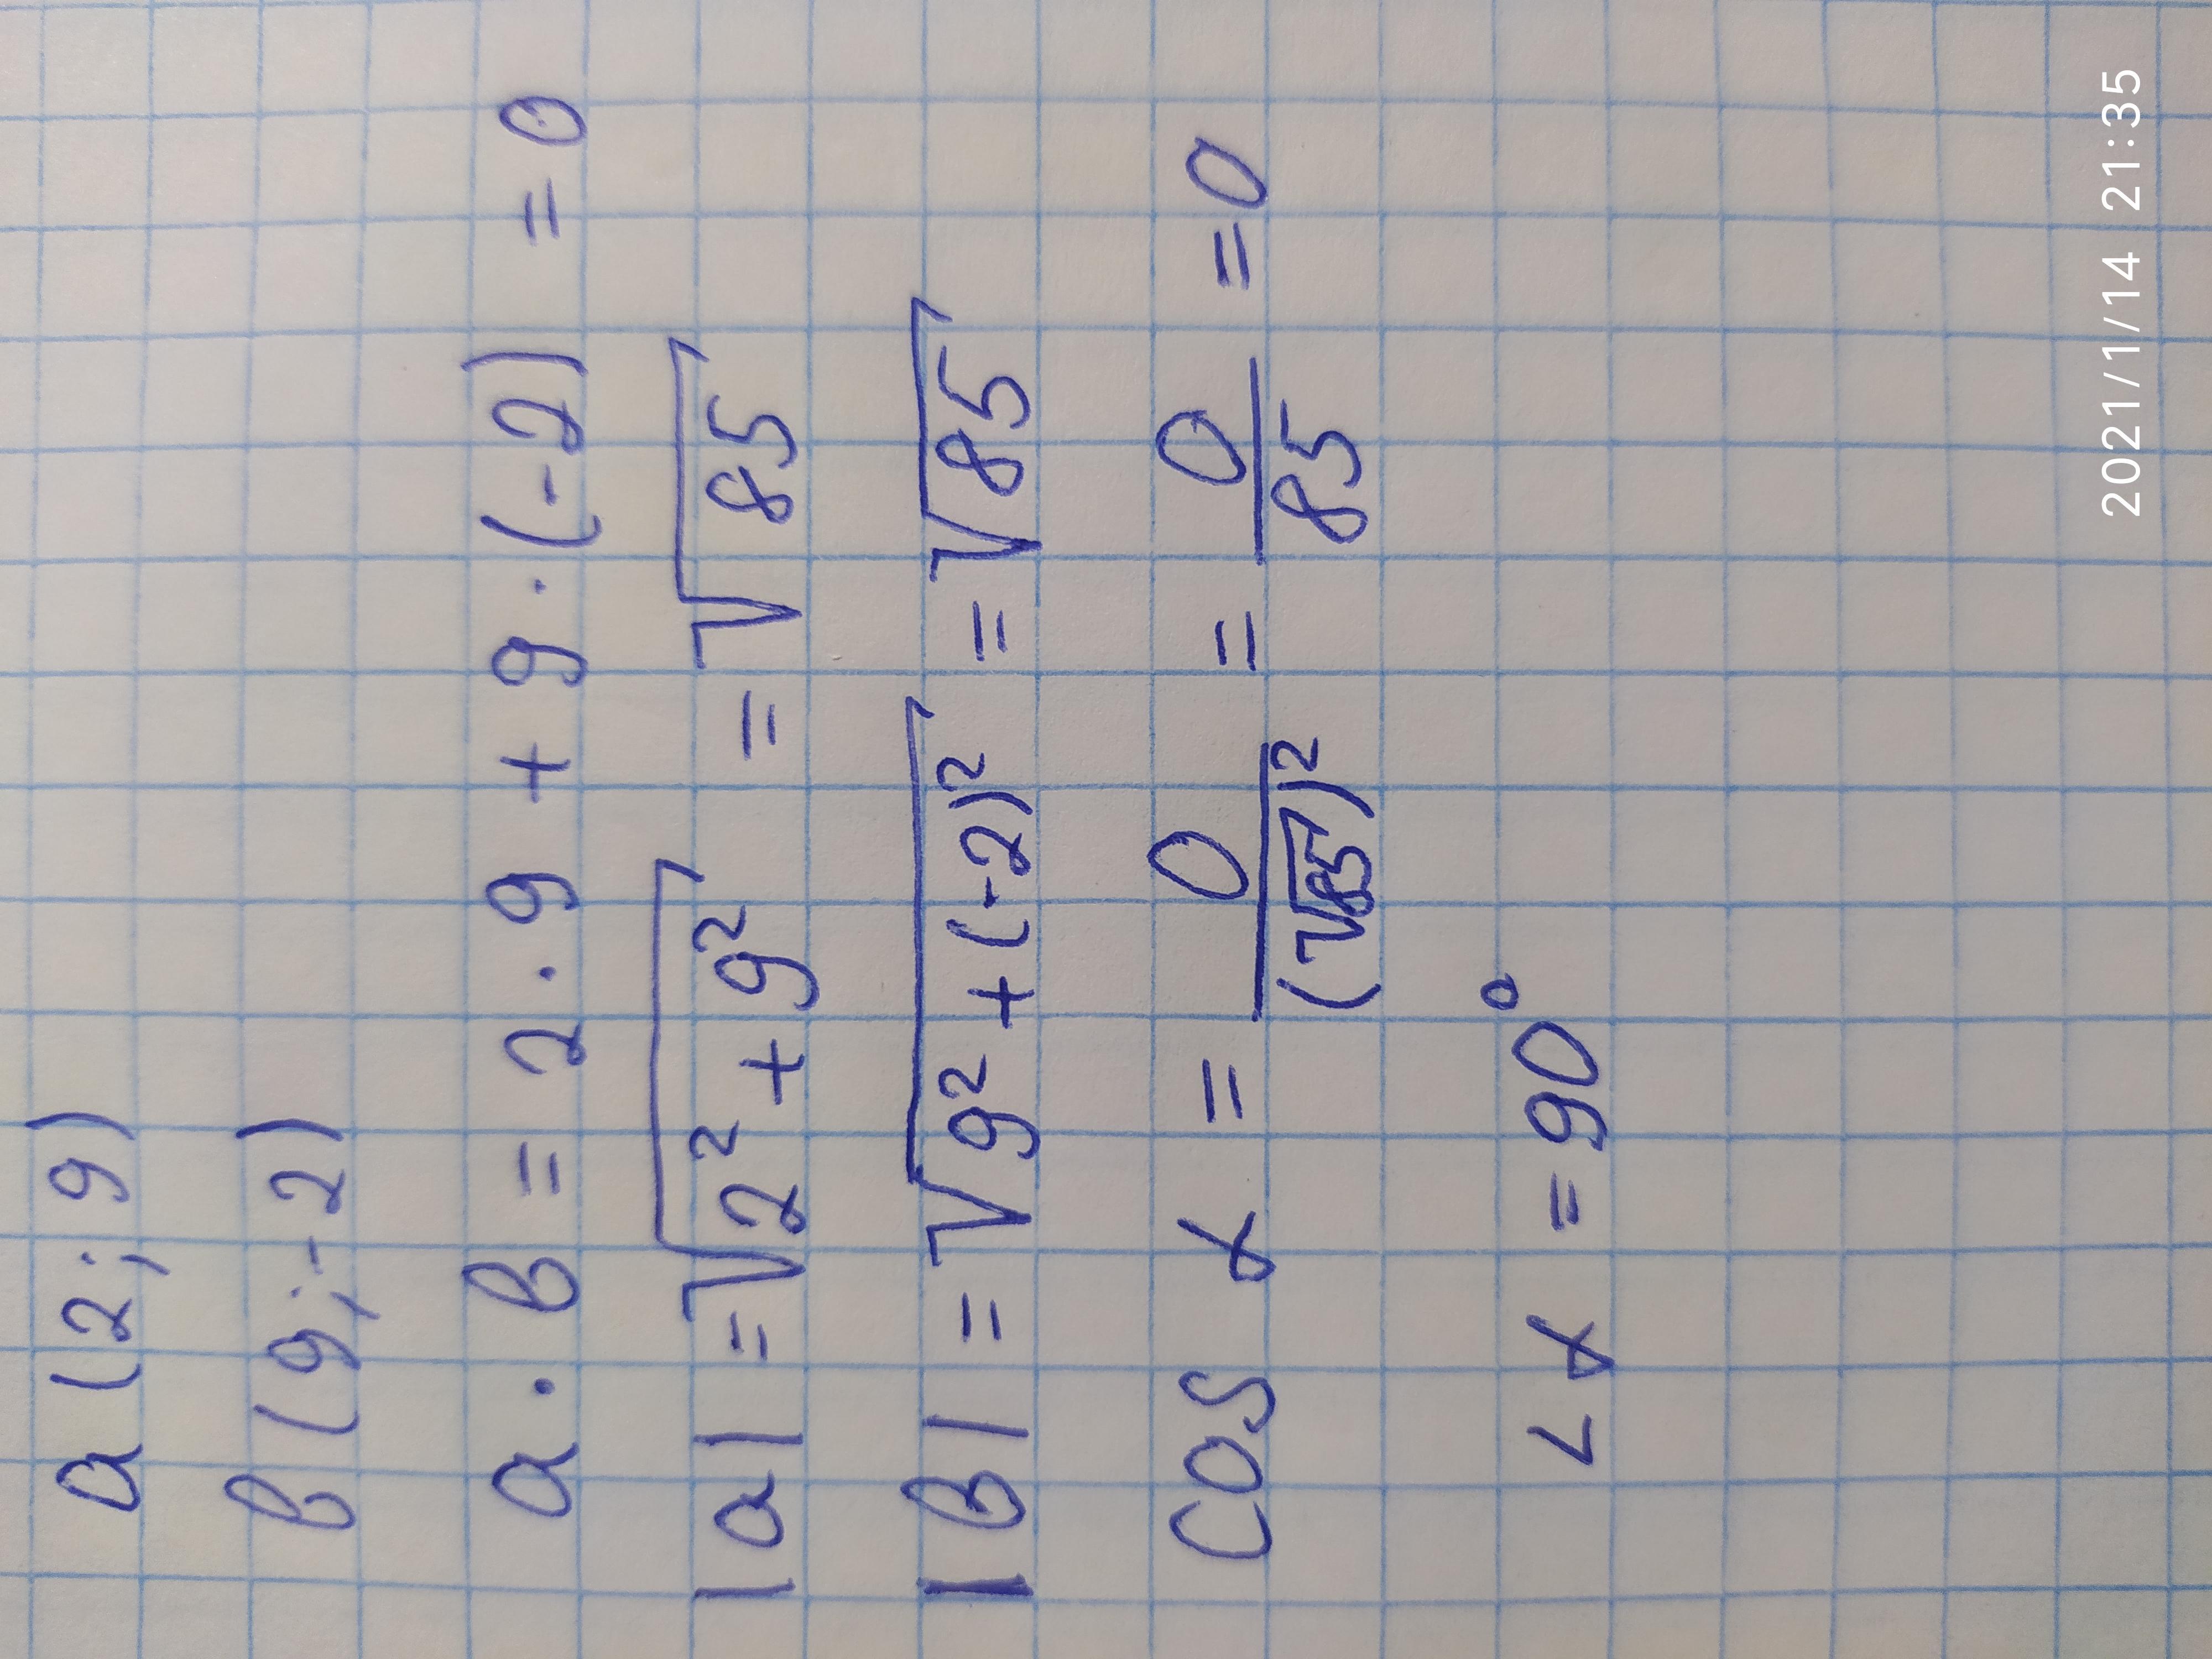 a (2; 9)
в (9; -2)
a · в = 2 · 9 + 9 · (-2) = 0
|a| = √(2² + 9²) = √85
|в| = √(9² + (-2)²) = √85
cos α = 0/(√85)² = 0/85 = 0
∠ α = 90°
2021/1/14 21:35